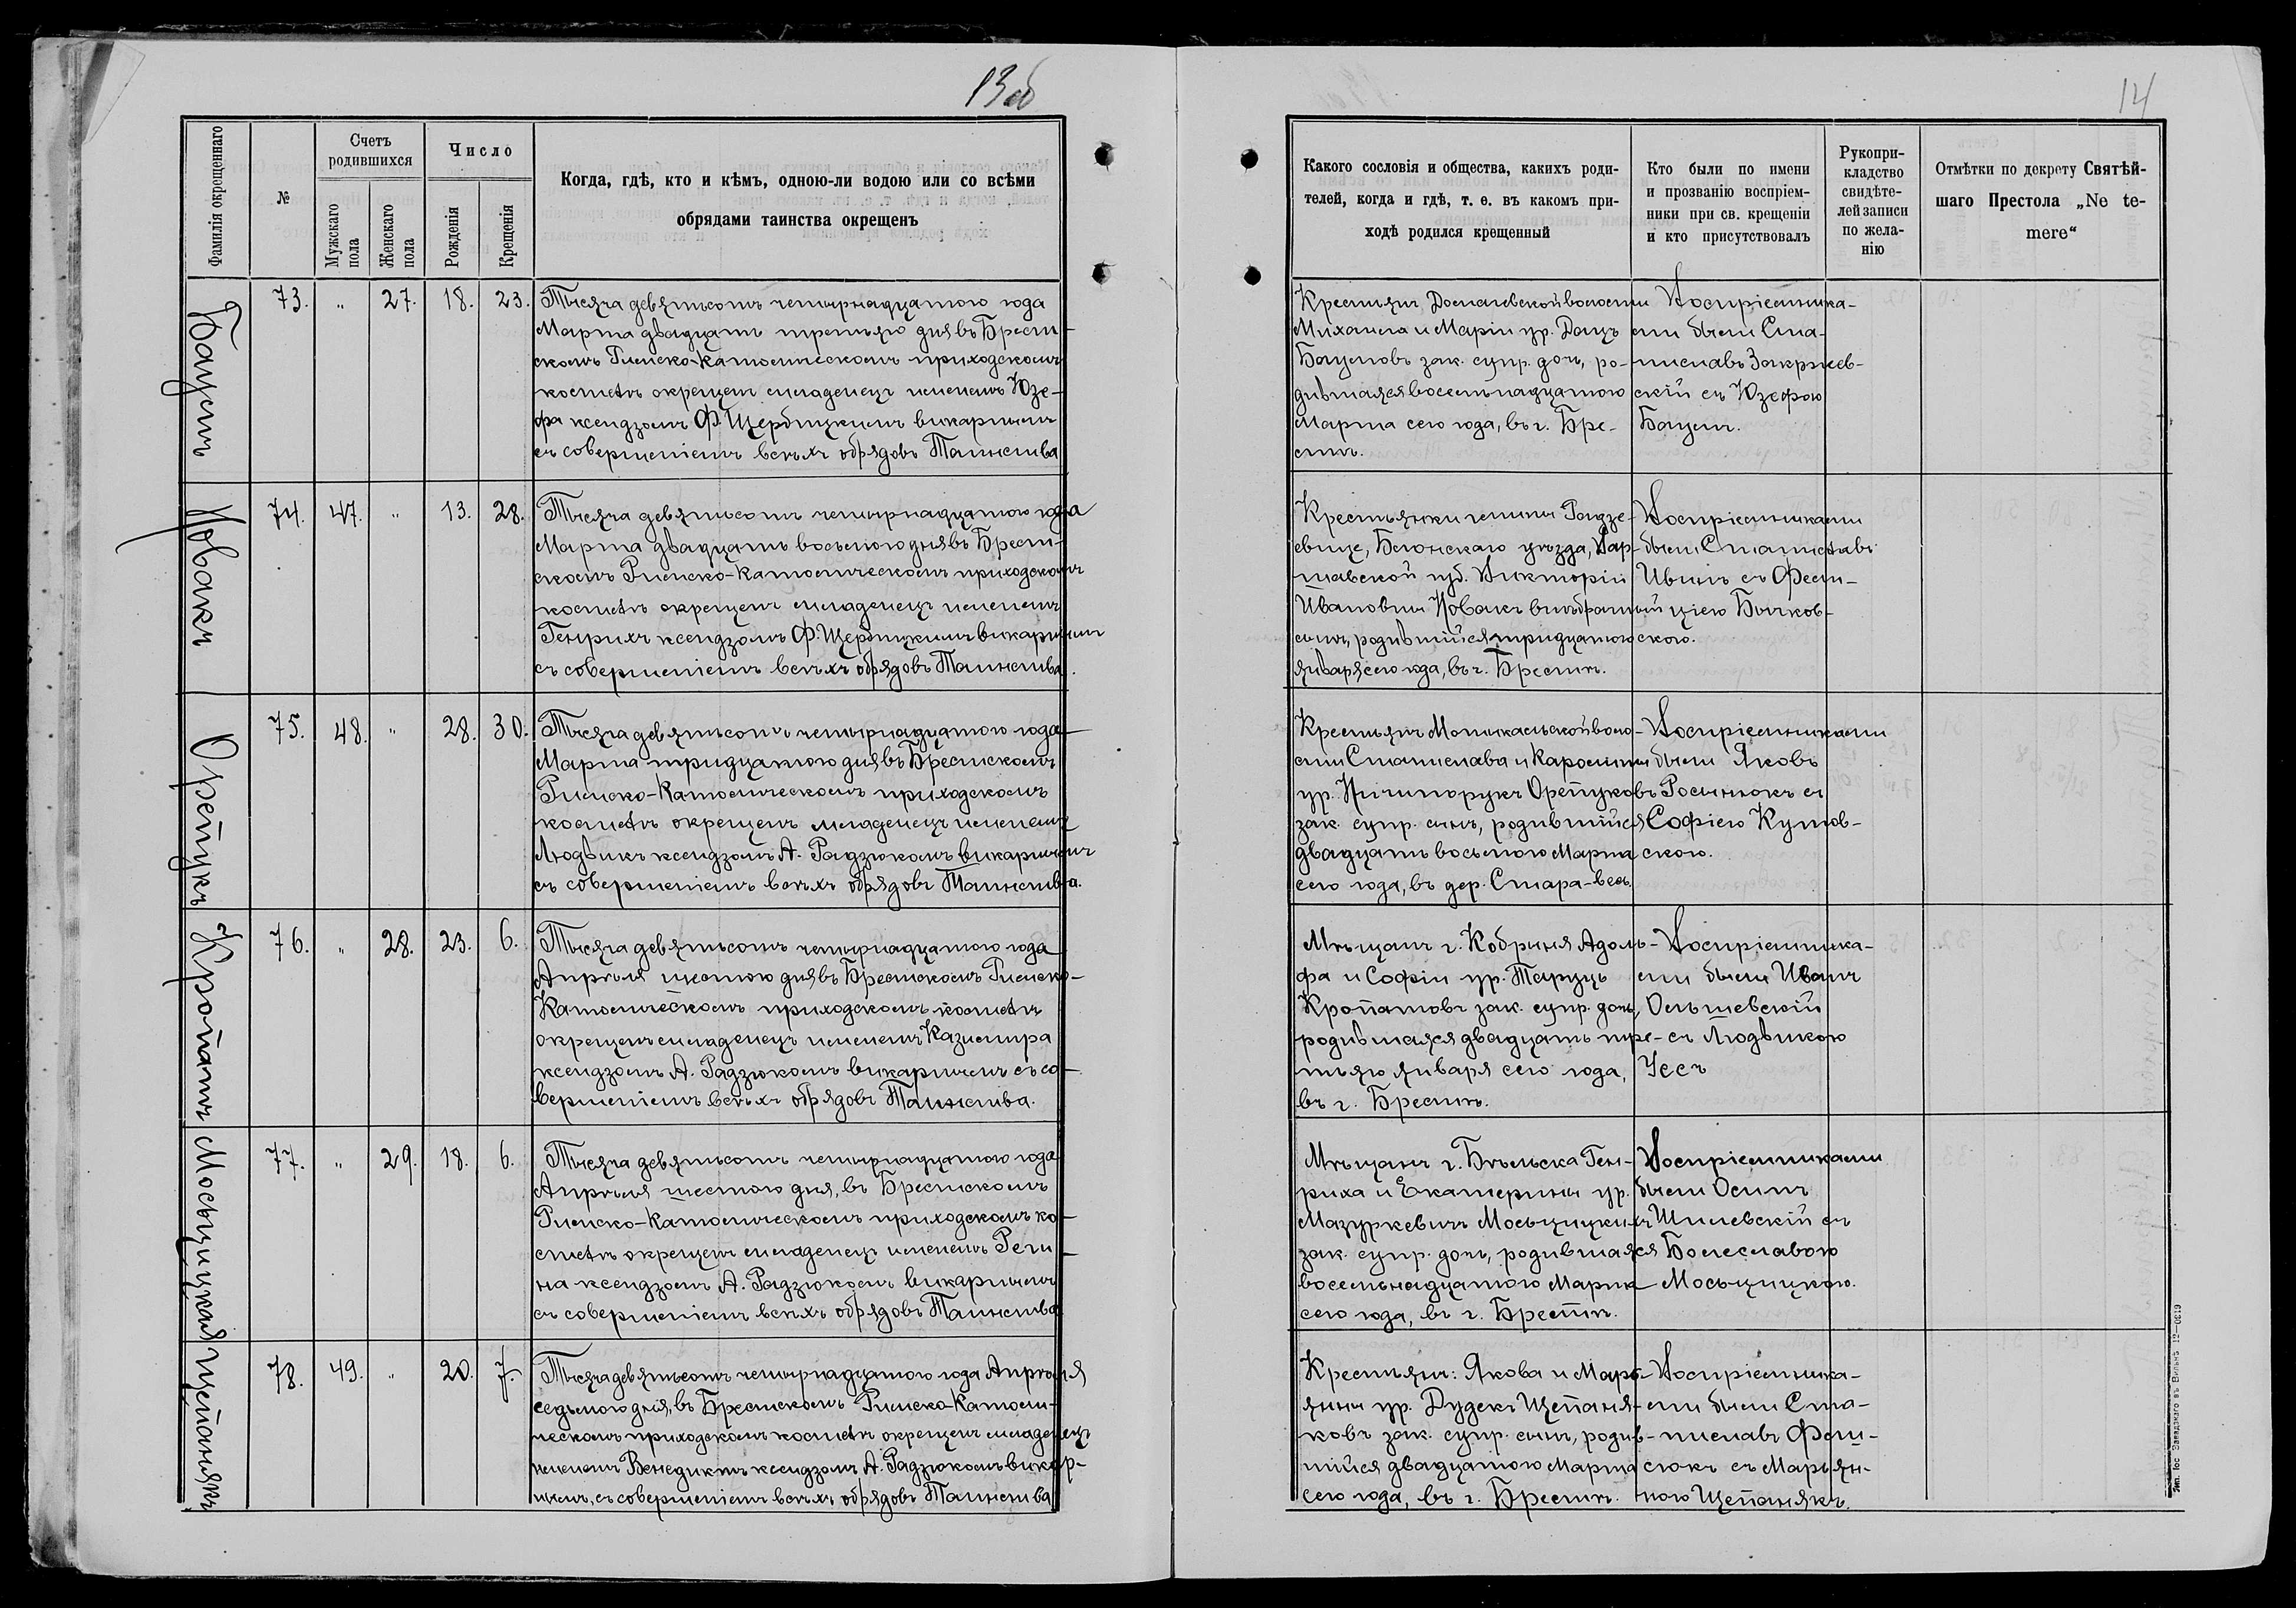 13об
Фамилія окрещеннаго
№
Счетъ
родившихся
Мужскаго
пола
Женскаго
пола
Число
Рожденія
Крещенія
Когда, гдѣ, кто и кѣмъ, одною-ли водою или со всѣми
обрядами таинства окрещенъ
Бацель
73.
"
27.
18.
23.
Тысяча девятьсотъ четырнадцатого года
Марта двадцать третьяго дня въ Брест-
скомъ Римско-Католическомъ приходскомъ
костелѣ окрещенъ младенецъ именемъ Юзе-
фа ксендзомъ Ф. Щербицкимъ викарнымъ
съ совершеніемъ всѣхъ обрядовъ Таинства
Новакъ
74.
47.
"
13.
28.
Тысяча девятьсотъ четырнадцатого года
Марта двадцать восьмого дня въ Брест-
скомъ Римско-Католическомъ приходскомъ
костелѣ окрещенъ младенецъ именемъ
Генрихъ ксендзомъ Ф. Щербицкимъ викарнымъ
съ совершеніемъ всѣхъ обрядовъ Таинства.
Орепукъ
75.
48.
"
28.
30.
Тысяча девятьсотъ четырнадцатого года
Марта тридцатого дня въ Брестскомъ
Римско-Католическомъ приходскомъ
костелѣ окрещенъ младенецъ именемъ
Людвикъ ксендзомъ А. Радзюкомъ викарнымъ
съ совершеніемъ всѣхъ обрядовъ Таинства.
Кропатъ
76.
"
28.
23.
6.
Тысяча девятьсотъ четырнадцатого года
Апрѣля шестого дня въ Брестскомъ Римско-
Католическомъ приходскомъ костелѣ
окрещенъ младенецъ именемъ Казимира
ксендзомъ А. Радзюкомъ викарнымъ съ со-
вершеніемъ всѣхъ обрядовъ Таинства.
Мосьцицкая
77.
"
29.
18.
6.
Тысяча девятьсотъ четырнадцатого года
Апрѣля шестого дня, въ Брестскомъ
Римско-Католическомъ приходскомъ ко-
стелѣ окрещенъ младенецъ именемъ Реги-
на ксендзомъ А. Радзюкомъ викарнымъ
съ совершеніемъ всѣхъ обрядовъ Таинства
Щепанякъ
78.
49.
"
20.
7.
Тысяча девятьсотъ четырнадцатого года Апрѣля
седьмого дня, въ Брестскомъ Римско-Католи-
ческомъ приходскомъ костелѣ окрещенъ младенецъ
именемъ Венедиктъ ксендзомъ А. Радзюкомъ викар-
нымъ, съ совершеніемъ всѣхъ обрядовъ Таинства
14
Какого сословія и общества, какихъ роди-
телей, когда и гдѣ, т. е. въ какомъ при-
ходѣ родился крещенный
Кто были по имени
и прозванію воспріем-
ники при св. крещеніи
и кто присутствовалъ
Рукопри-
кладство
свидѣте-
лей записи
по жела-
нію
Отмѣтки по декрету Святѣй-
шаго Престола „Ne te-
mere“
Крестьянъ волости
Михаила и Маріи ур. Доцъ
Бацеловъ зак. супр. дочь, ро-
дившаяся восемьнадцатого
Марта сего года, въ г. Бре-
стѣ.
Воспріемника-
ми были Ста-
ниславъ Закржев-
скій съ Юзефою
Бацель.
Крестьянки гмины Радзе-
евице, Блонскаго уѣзда, Вар-
шавской губ. Викторіи
Ивановны Новакъ внѣбрачный
сынъ, родившійся тридцатого
января сего года, въ г. Брестѣ.
Воспріемниками
были Станиславъ
Ивинъ съ Фели-
ціею Бычков-
скою.
Крестьянъ Мотыкальской воло-
сти Станислава и Каролины
ур. Ничипорукъ Орепуковъ
зак. супр. сынъ, родившійся
двадцать восьмого Марта
сего года, въ дер. Стара-весь.
Воспріемниками
были Яковъ
Росинюкъ съ
Софіею Кутов-
скою.
Мѣщанъ г. Кобрыня Адоль-
фа и Софіи ур.
Кропатовъ зак. супр. дочь,
родившаяся двадцать тре-
тьяго января сего года,
въ г. Брестѣ.
Воспріемника-
ми были Иванъ
Ольшевскій
съ Людвикою
Усъ
Мѣщанъ г. Бѣльска Ген-
риха и Екатерины ур.
Мазуркевичъ Мосьцицкихъ
зак. супр. дочь, родившаяся
восемьнадцатого Марта
сего года, въ г. Брестѣ.
Воспріемниками
были Осипъ
Шилевскій съ
Болеславою
Мосьцицкою.
Крестьянъ: Якова и Марь-
янны ур. Дудекъ Щепаня-
ковъ зак. супр. сынъ, родив-
шійся двадцатого Марта
сего года, въ г. Брестѣ.
Воспріемника-
ми были Ста-
ниславъ Фели-
сюкъ съ Марьян-
ною Щепанякъ.